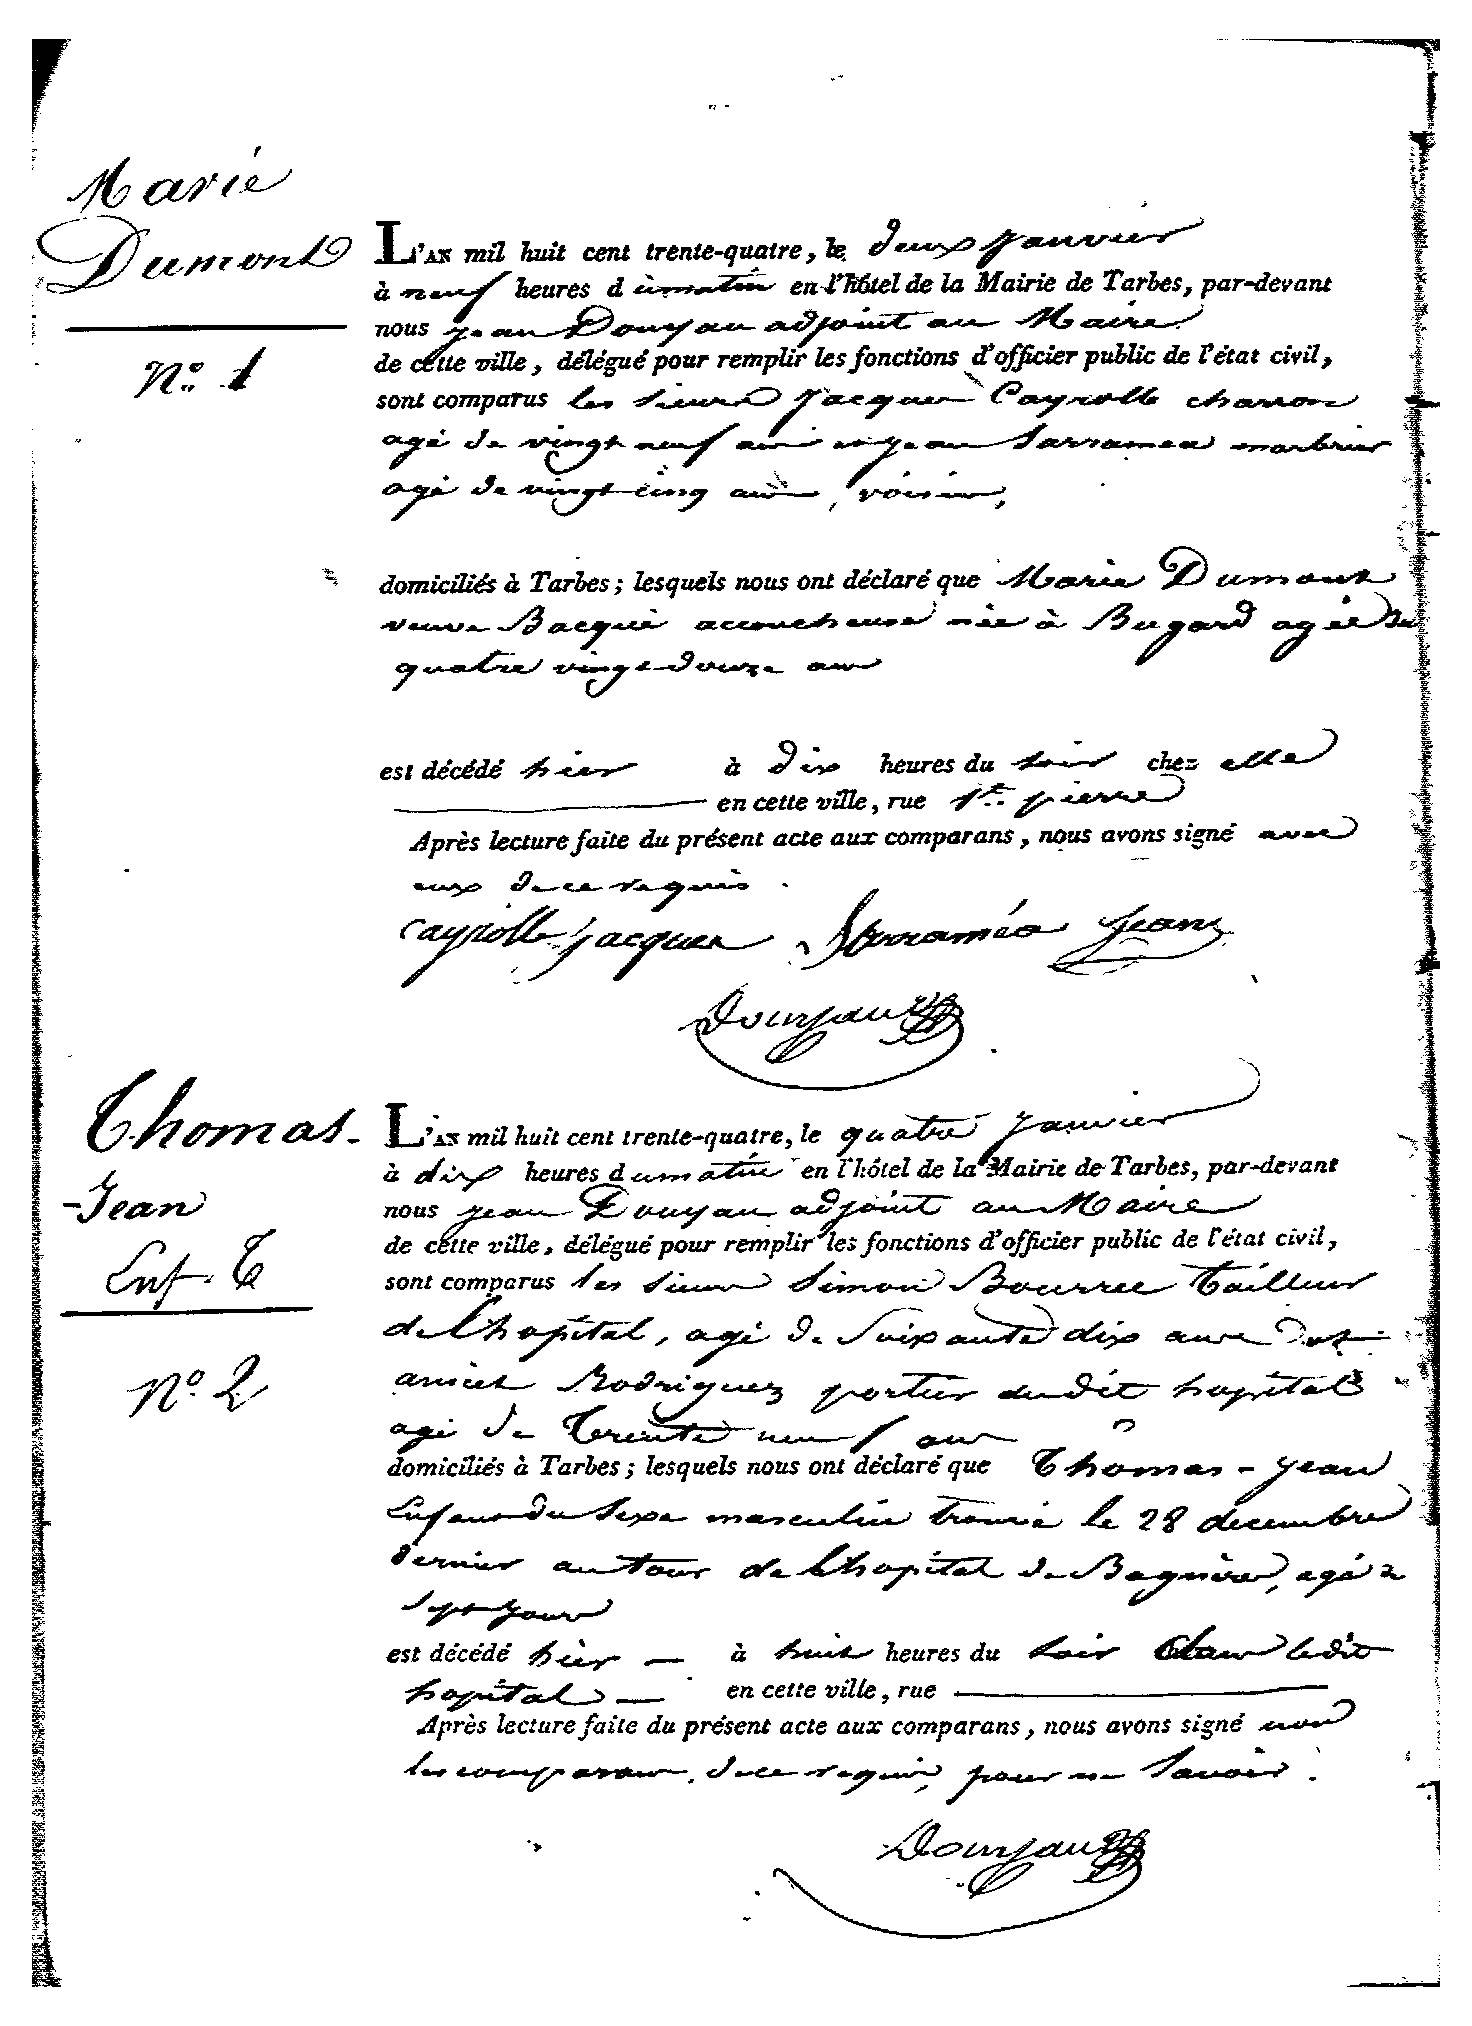 Marie
Dumont
N.º 1
L'AN mil huit cent trente-quatre, le deux janvier
à neuf heures d u matin en l'hôtel de la Mairie de Tarbes, par-devant
nous jean Douyau adjoint au Maire
de cette ville, délégué pour remplir les fonctions d'officier public de l'état civil,
sont comparus les sieurs jacques Cayrolle charron
agé de vingt neuf ans et jean Sarramea marbrier
agé de vingt cinq ans, voisins,
domiciliés à Tarbes; lesquels nous ont déclaré que Marie Dumont
veuve Bacquè accoucheuse née à Bugard agée de
quatre vingt douze ans
est décédé hier à dix heures du soir chez elle
en cette ville, rue St. pierre
Après lecture faite du présent acte aux comparans, nous avons signé avec
eux de ce requis.
Cayrolle jacques Sarraméa Jean
Douyau
Thomas-
-Jean
Enf. T
N.º 2
L'AN mil huit cent trente-quatre, le quatre janvier
à dix heures d u matin en l'hôtel de la Mairie de Tarbes, par-devant
nous jean Douyau adjoint au Maire
de cette ville, délégué pour remplir les fonctions d'officier public de l'état civil,
sont comparus les sieurs Simon Bourree tailleur
de l'hopital, agé de Soixante dix ans et
Rodriguez portier du dit hopital
agé de trente neuf ans
domiciliés à Tarbes; lesquels nous ont déclaré que Thomas-jean
Enfant du sexe masculin trouvé le 28 decembre
dernier au tour de l'hopital de Bagnères, agé de
sept jours
est décédé hier à huit heures du soir dans le dit
hopital en cette ville, rue
Après lecture faite du présent acte aux comparans, nous avons signé non
les comparans, de ce requis, pour ne savoir.
Douyau